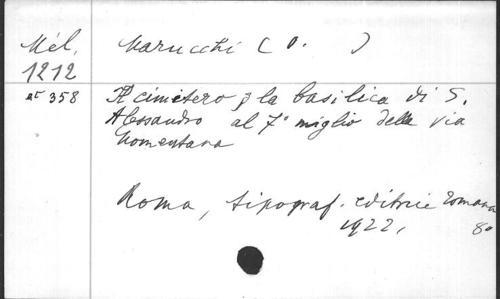 Mél. Marucchi (O. )
1212
nr 358 Il cimitero e la basilica di S.
Alessandro al 7° miglio della via
Nomentana
Roma, tipograf. editrice romana
1922, 8°